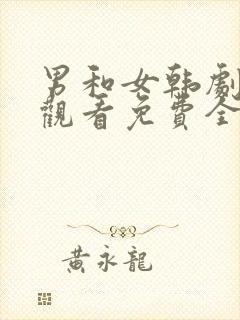 男和女韩劇
觀看免費全
黃永龍